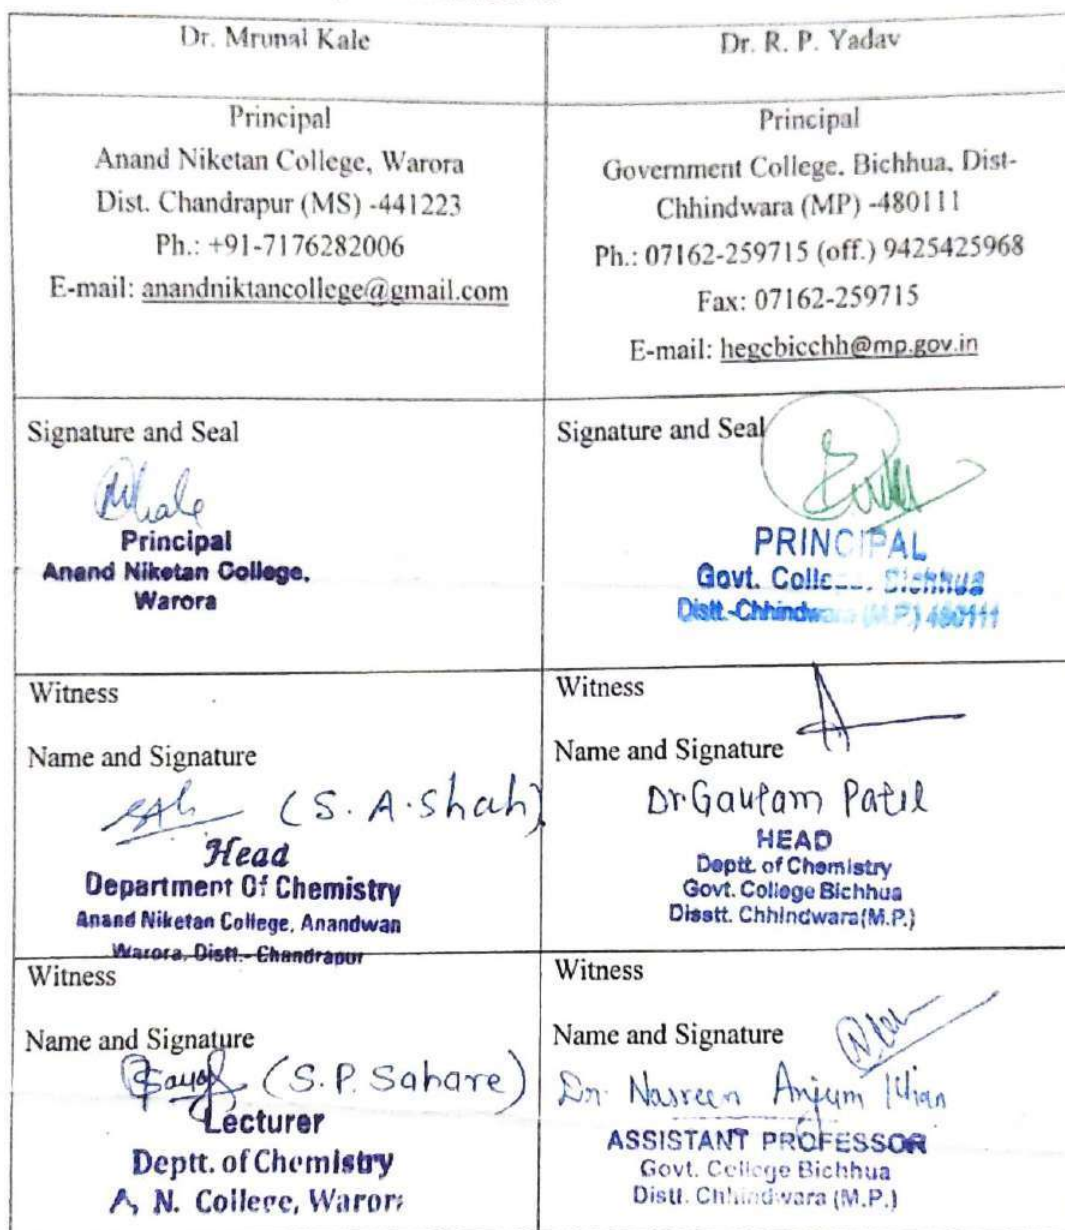 Dr. Mrunal Kale
Dr. R. P. Yadav
Principal
Anand Niketan College, Warora
Dist. Chandrapur (MS) -441223
Ph.: +91-7176282006
E-mail: anandniktancollege@gmail.com
Principal
Government College, Bichhua, Dist-
Chhindwara (MP) -480111
Ph.: 07162-259715 (off.) 9425425968
Fax: 07162-259715
E-mail: hegcbicchh@mp.gov.in
Signature and Seal
Principal
Anand Niketan College,
Warora
Signature and Seal
PRINCIPAL
Govt. College, Bichhua
Distt.-Chhindwara (M.P.) 480111
Witness
Name and Signature
(S. A. Shah)
Head
Department Of Chemistry
Anand Niketan College, Anandwan
Warora, Distt.- Chandrapur
Witness
Name and Signature
Dr Gautam Patil
HEAD
Deptt. of Chemistry
Govt. College Bichhua
Disstt. Chhindwara(M.P.)
Witness
Name and Signature
(S. P. Sahare)
Lecturer
Deptt. of Chemistry
A. N. College, Warora
Witness
Name and Signature
Dr. Nasreen Anjum Khan
ASSISTANT PROFESSOR
Govt. College Bichhua
Distt. Chhindwara (M.P.)